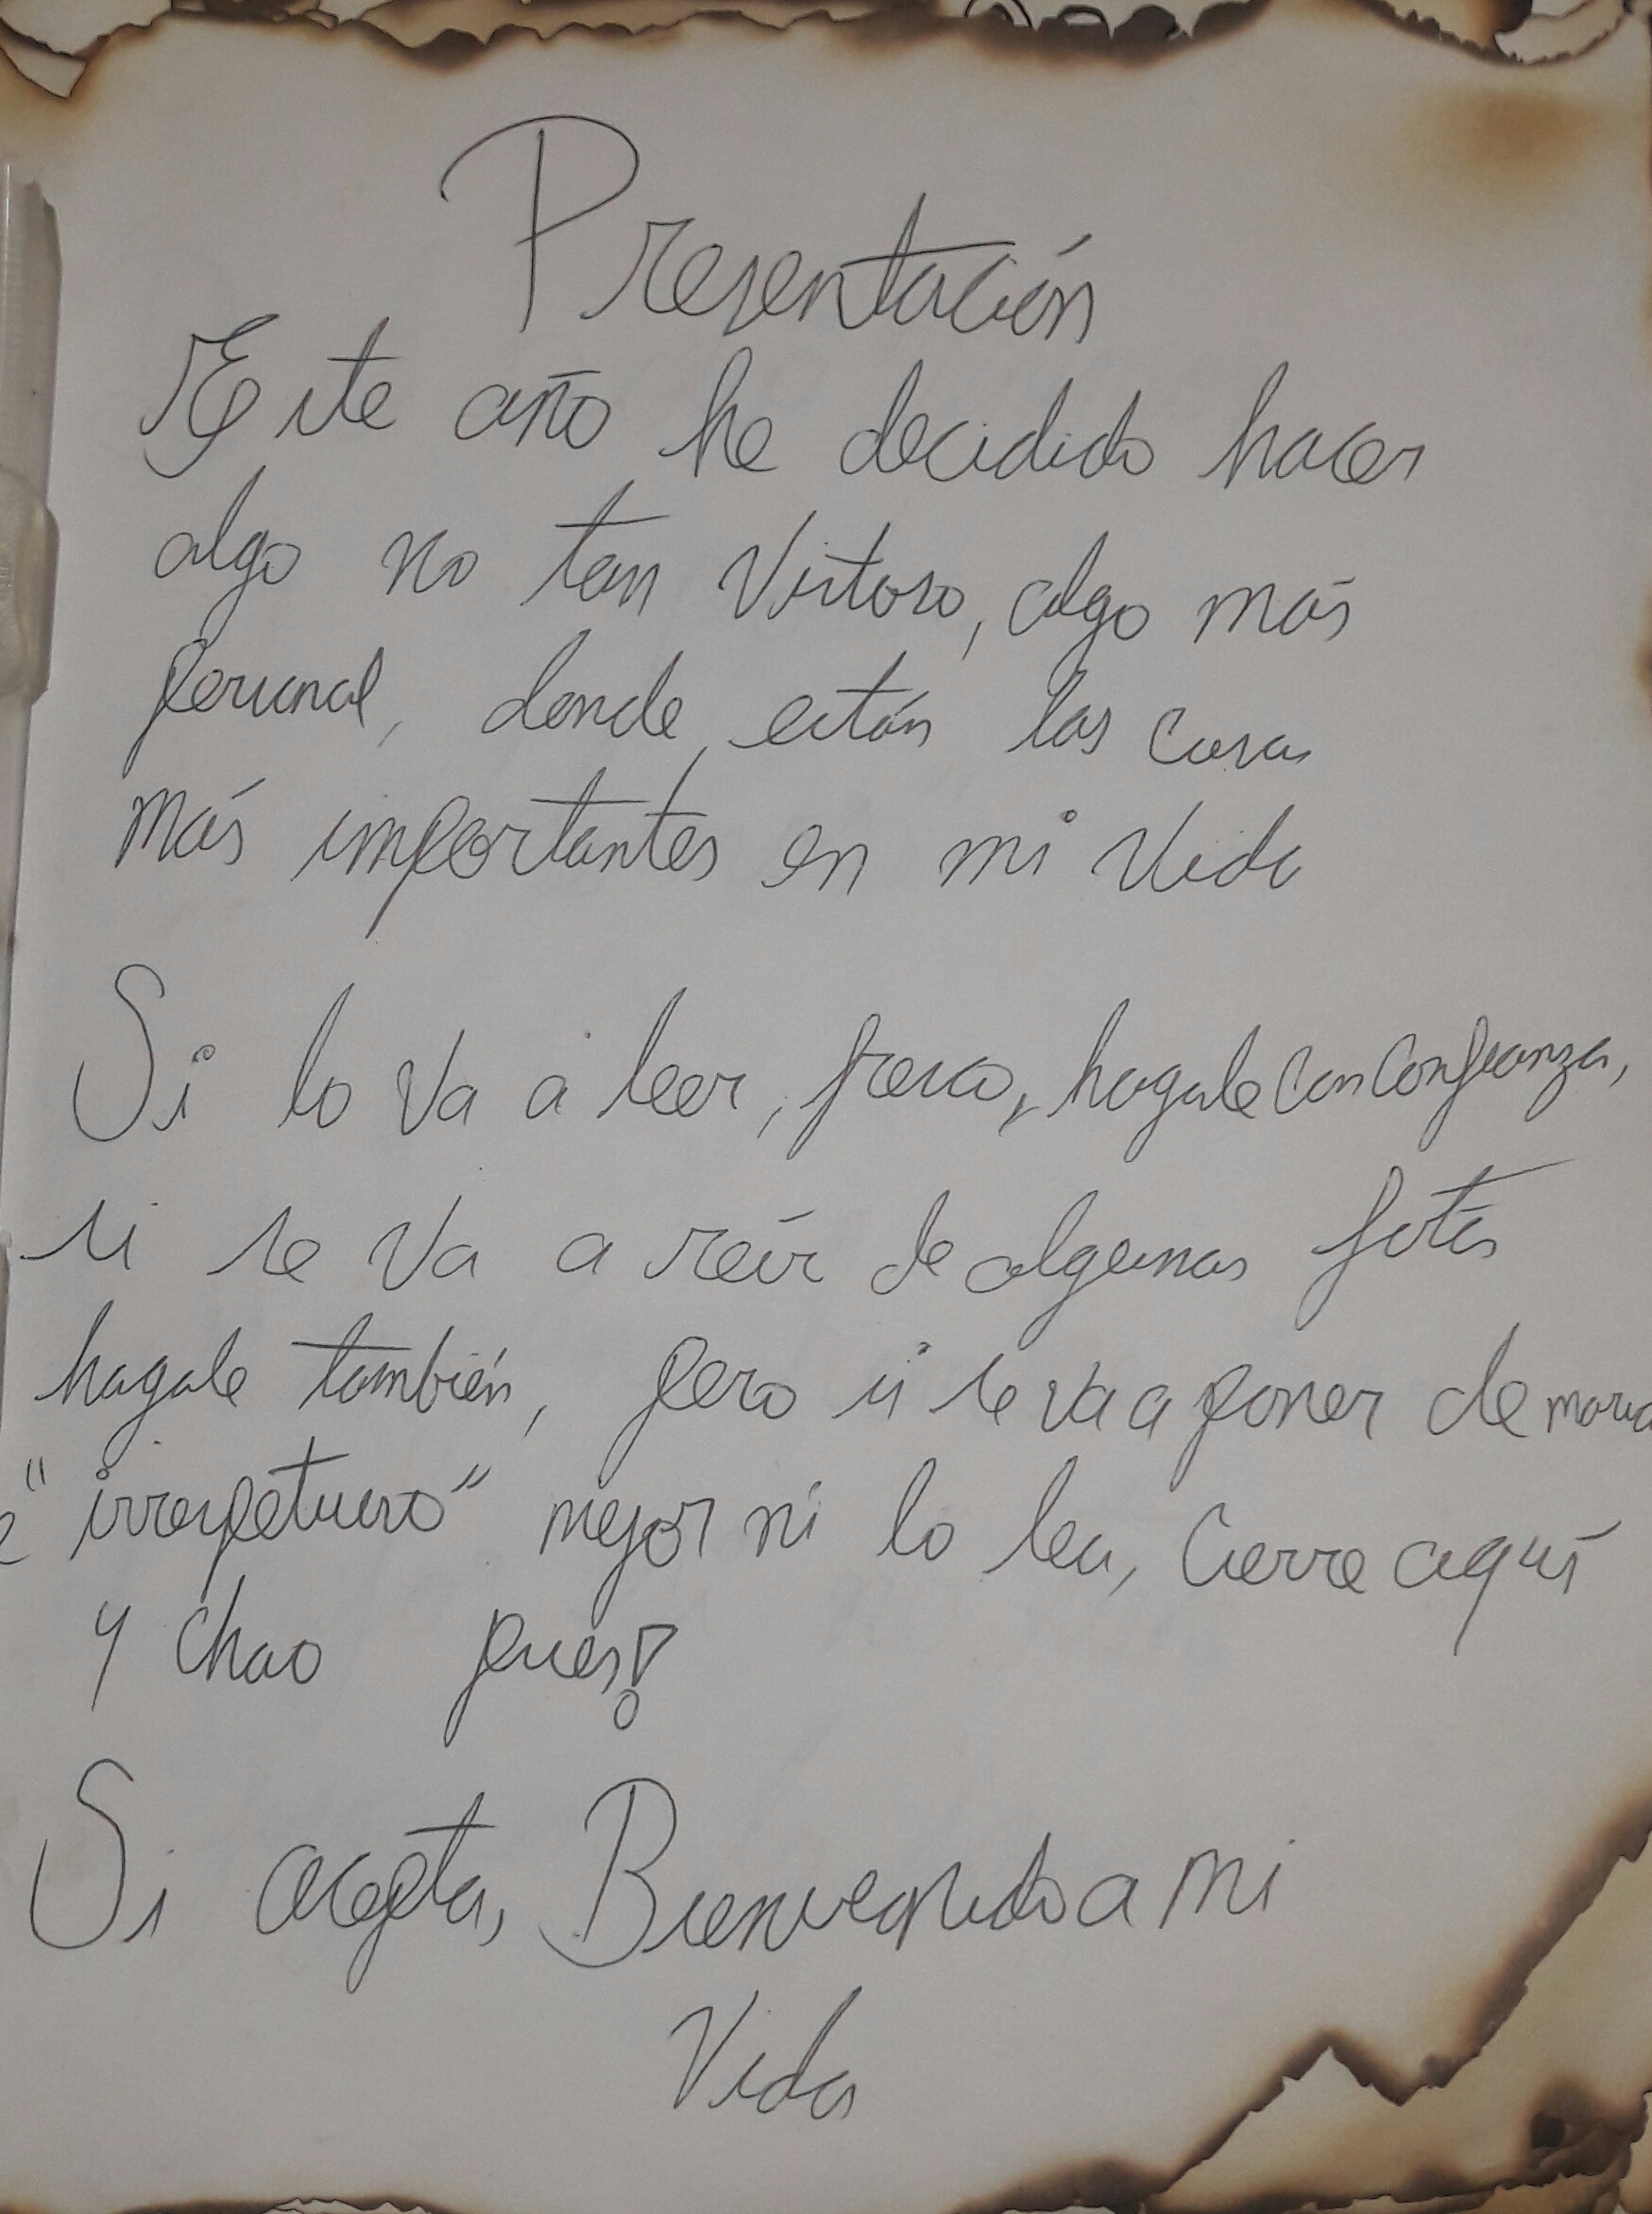 Presentación
Este año he decidido hacer
algo no tan Vistoso, algo más
personal, donde están las cosas
más importantes en mi Vida
Si lo va a leer, fresco, hagale con Confianza,
si se va a reír de algunas fotos
hagale también, pero si se va a poner de
"irrespetuoso" mejor ni lo lea, Cierre aquí
y chao pues!
Si acepta, Bienvenido a mi
Vida